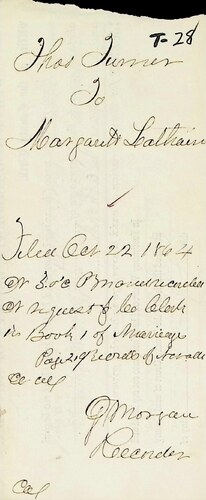 T-28
Thos Turner
To
Margarett Latham
Filed Oct 22 1864
At 3 o'c P M and recorded
At request of Co Clerk
in Book 1 of Marriage
Page 29 Records of Nevada
Co Cal
G Morgan
Recorder
Cal